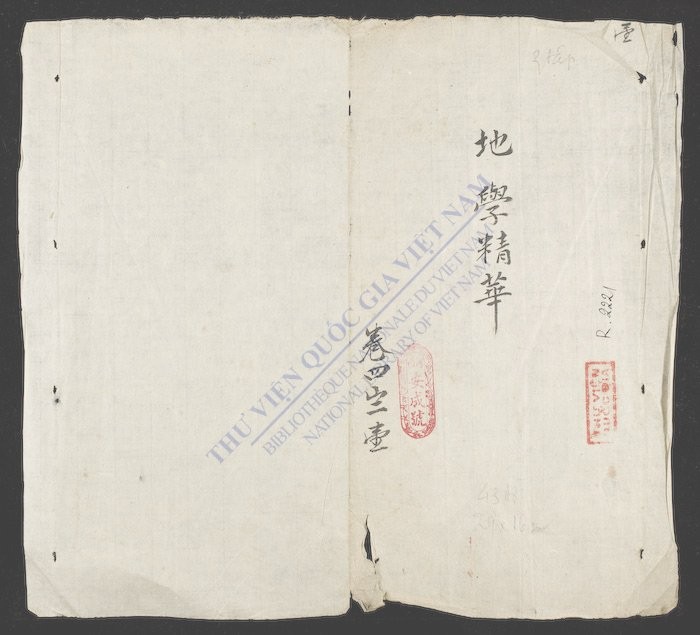 壹
地學精華
卷四之壹
安成號
R. 2221
THƯ VIỆN QUỐC GIA VIỆT NAM
BIBLIOTHÈQUE NATIONALE DU VIETNAM
NATIONAL LIBRARY OF VIETNAM